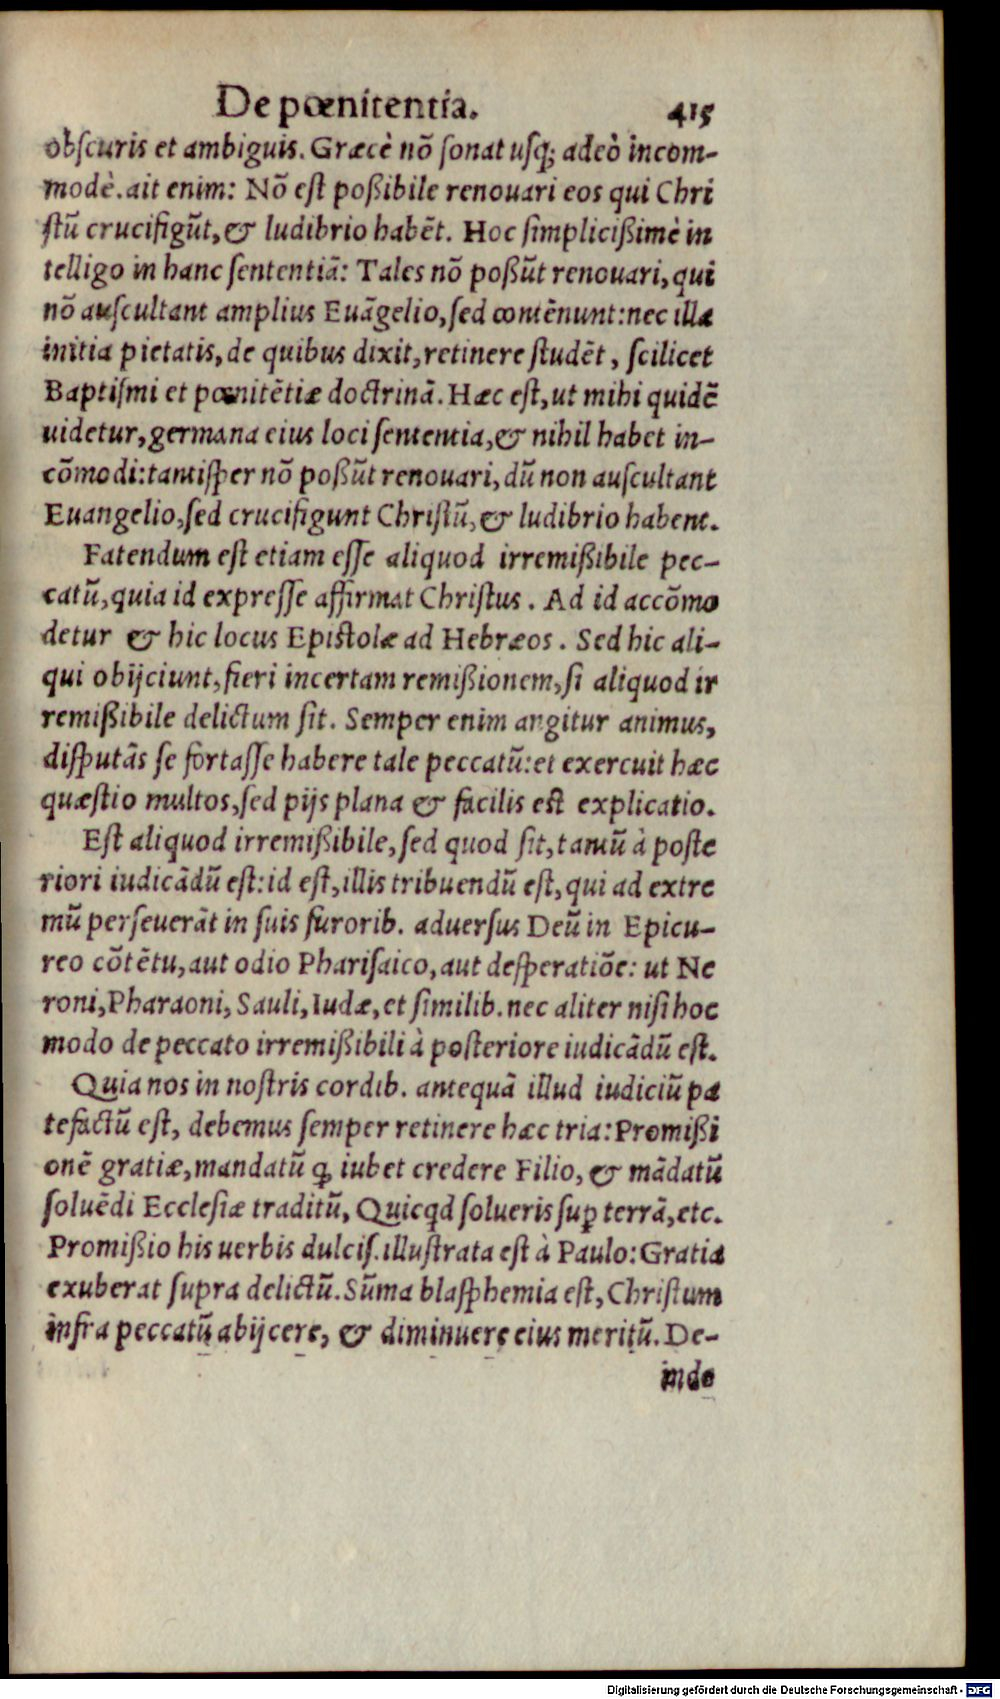 De pœnitentia. 415
obſcuris et ambiguis. Græcè nõ ſonat uſq; adeò incom-
modè. ait enim: Nõ eſt poßibile renouari eos qui Chri
ſtũ crucifigũt, & ludibrio habẽt. Hoc ſimplicißimè in
telligo in hanc ſententiã: Tales nõ poßũt renouari, qui
nõ auſcultant amplius Euãgelio, ſed contẽnunt: nec illa
initia pietatis, de quibus dixit, retinere ſtudẽt, ſcilicet
Baptiſmi et pœnitẽtiæ doctrinã. Hæc eſt, ut mihi quidẽ
uidetur, germana eius loci ſententia, & nihil habet in-
cõmodi: tantiſper nõ poßũt renouari, dũ non auſcultant
Euangelio, ſed crucifigunt Chriſtũ, & ludibrio habent.
Fatendum eſt etiam eſſe aliquod irremißibile pec-
catũ, quia id expreſſe affirmat Chriſtus. Ad id accõmo
detur & hic locus Epiſtolæ ad Hebræos. Sed hic ali-
qui obijciunt, fieri incertam remißionem, ſi aliquod ir
remißibile delictum ſit. Semper enim angitur animus,
diſputãs ſe fortaſſe habere tale peccatũ: et exercuit hæc
quæſtio multos, ſed pijs plana & facilis eſt explicatio.
Eſt aliquod irremißibile, ſed quod ſit, tamũ à poſte
riori iudicãdũ eſt: id eſt, illis tribuendũ eſt, qui ad extre
mũ perſeuerãt in ſuis furorib. aduerſus Deũ in Epicu-
reo cõtẽtu, aut odio Phariſaico, aut deſperatiõe: ut Ne
roni, Pharaoni, Sauli, Iudæ, et ſimilib. nec aliter niſi hoc
modo de peccato irremißibili à poſteriore iudicãdũ eſt.
Quia nos in noſtris cordib. antequã illud iudiciũ pa
tefactũ eſt, debemus ſemper retinere hæc tria: Promißi
onẽ gratiæ, mandatũ ꝙ iubet credere Filio, & mãdatũ
ſoluẽdi Eccleſiæ traditũ, Quicqd ſolueris ſuꝑ terrã, etc.
Promißio his uerbis dulciſ. illuſtrata eſt à Paulo: Gratia
exuberat ſupra delictũ. Sũma blaſphemia eſt, Chriſtum
infra peccatũ abijcere, & diminuere eius meritũ. De-
inde
Digitalisierung gefördert durch die Deutsche Forschungsgemeinschaft - DFG